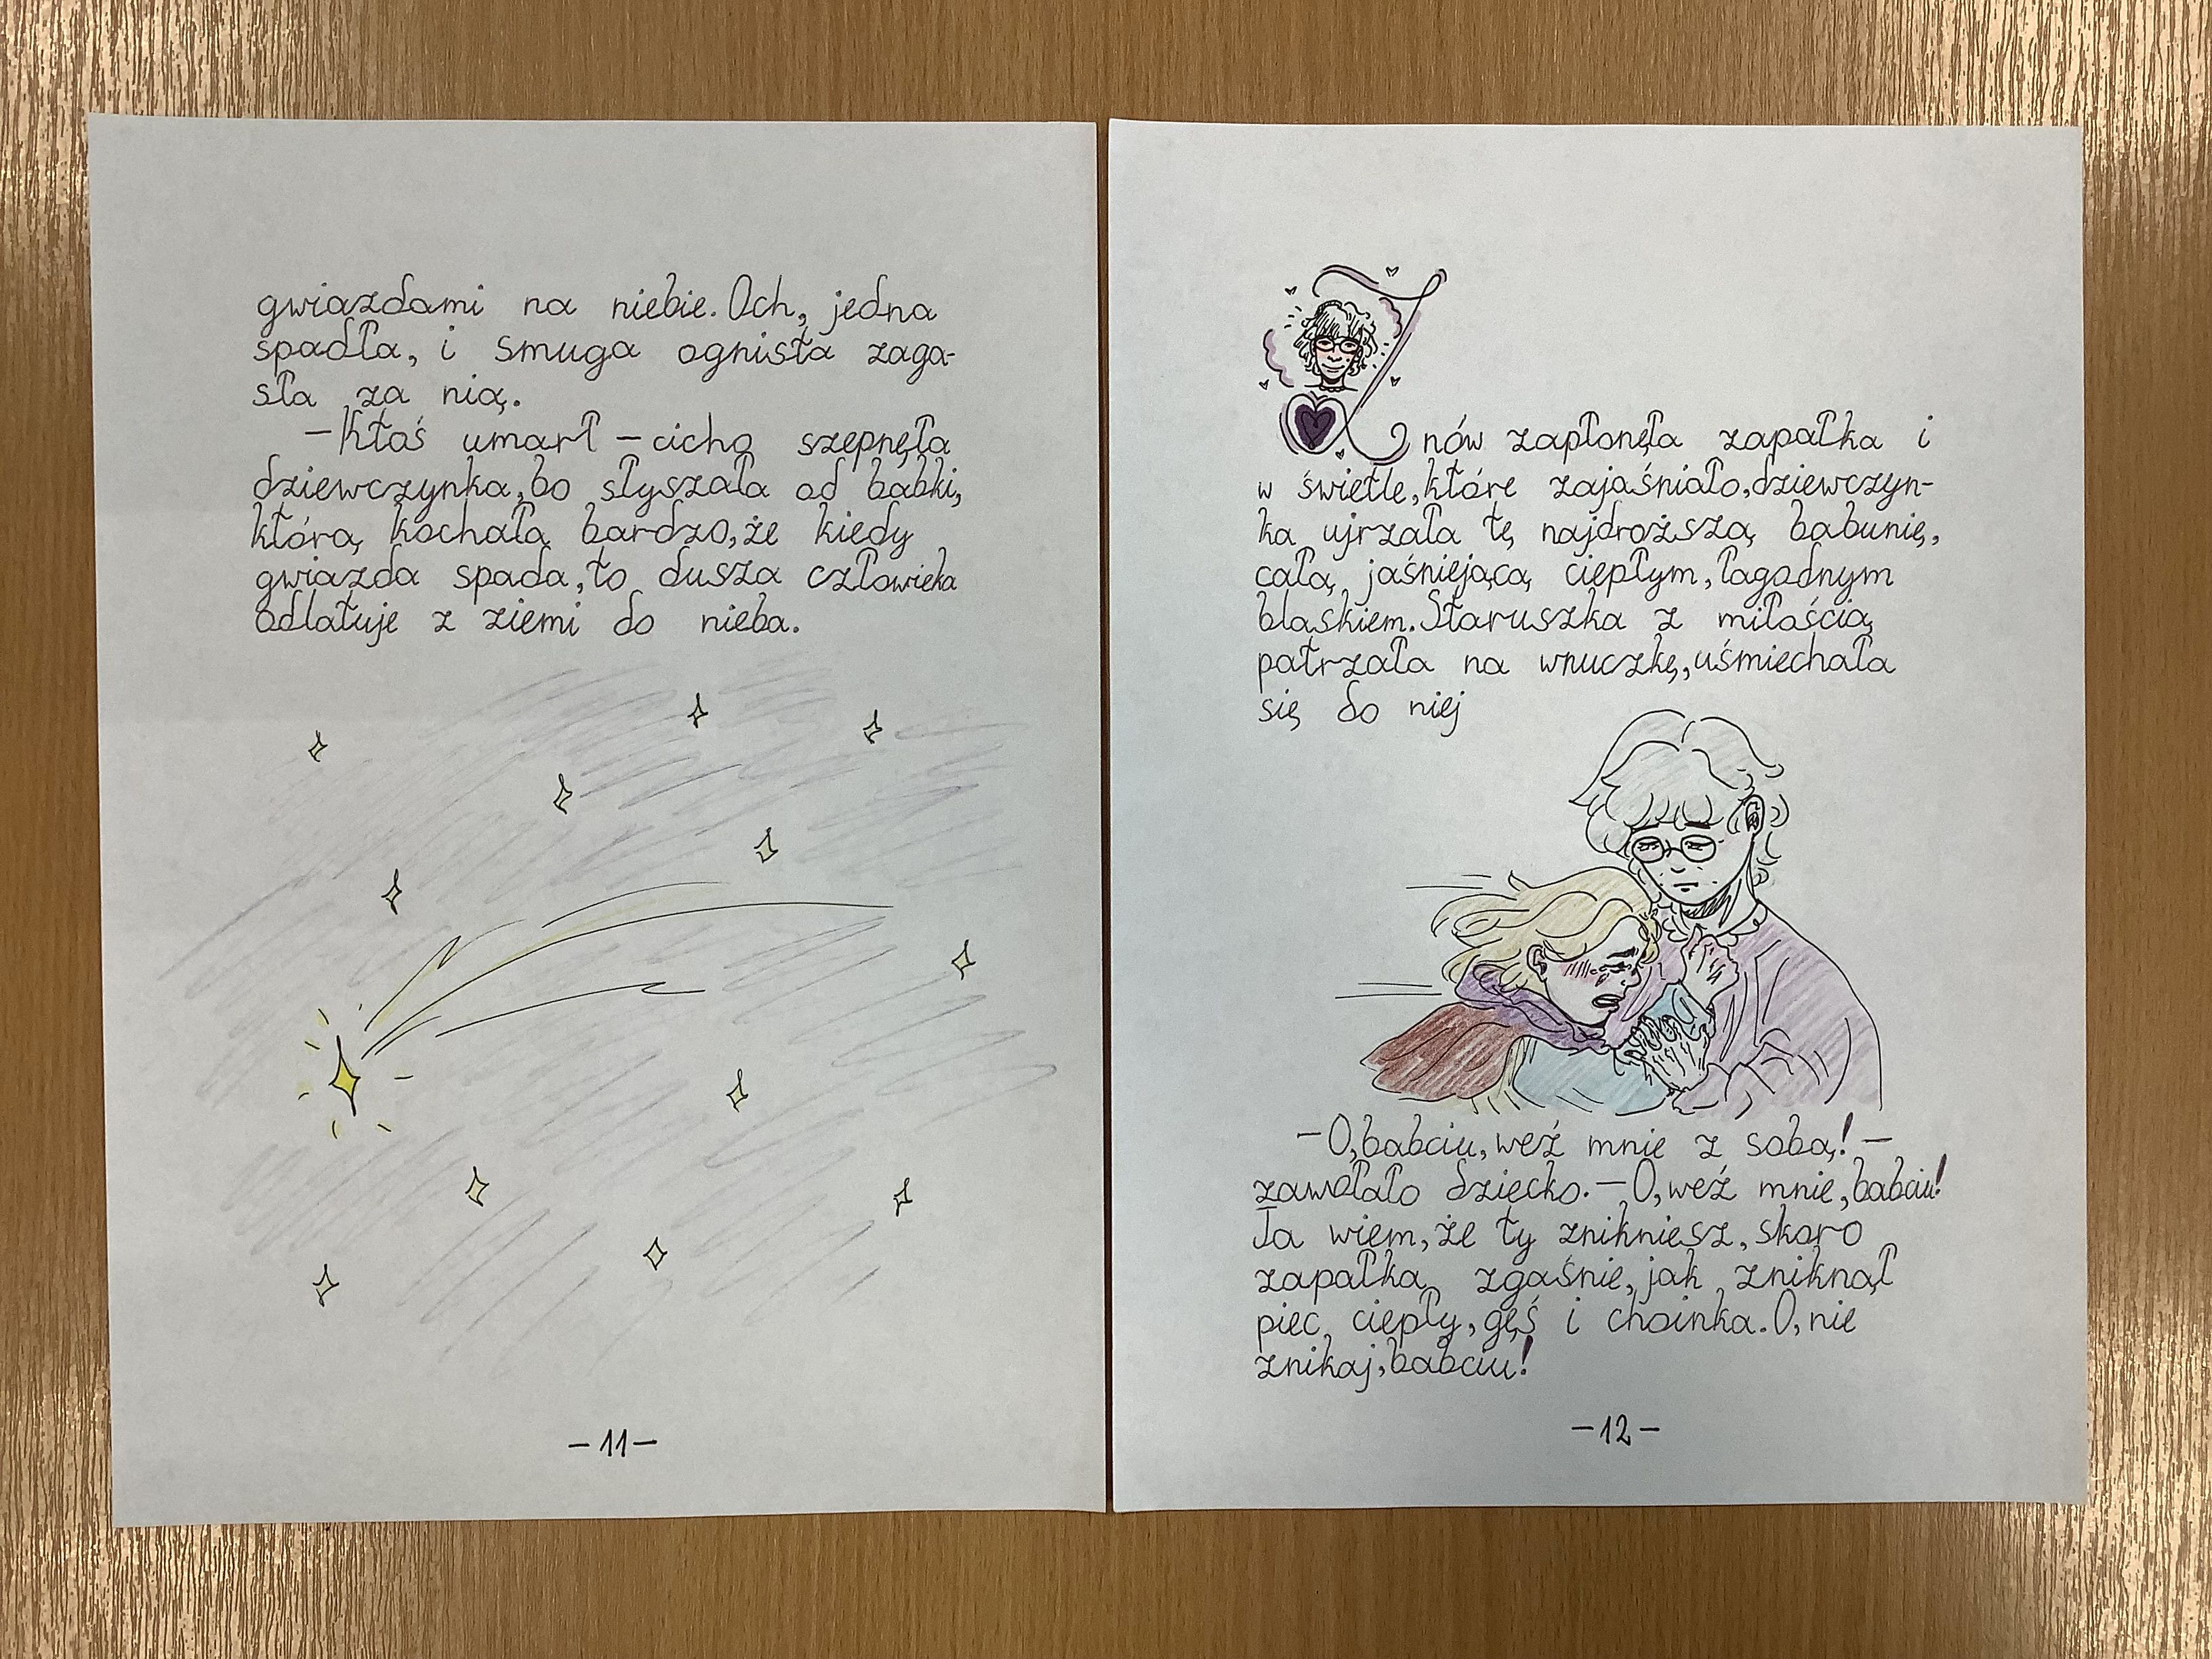 gwiazdami na niebie. Och, jedna
spadła, i smuga ognista zaga-
sła za nią.
– Ktoś umarł – cicho szepnęła
dziewczynka, bo słyszała od babki,
którą kochała bardzo, że kiedy
gwiazda spada, to dusza człowieka
odlatuje z ziemi do nieba.
– 11 –
Znów zapłonęła zapałka i
w świetle, które zajaśniało, dziewczyn-
ka ujrzała tę najdroższą babunię,
całą jaśniejącą ciepłym, łagodnym
blaskiem. Staruszka z miłością
patrzała na wnuczkę, uśmiechała
się do niej
– O, babciu, weź mnie z sobą! –
zawołało dziecko. – O, weź mnie, babciu!
Ja wiem, że ty znikniesz, skoro
zapałka zgaśnie, jak zniknął
piec ciepły, gęś i choinka. O, nie
znikaj, babciu!
– 12 –